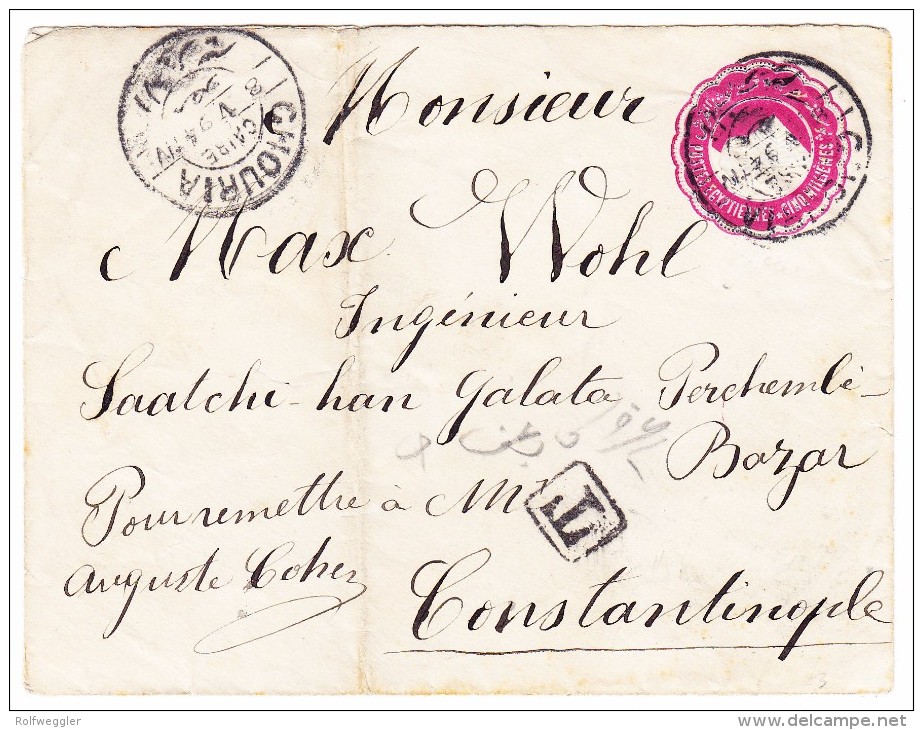 GHOURIA
CAIRE
8 V 9 AM
POSTES EGYPTIENNES CINQ MILLIEMES
Monsieur
Max Wohl
Ingénieur
Saatchi-han Galata Perchembé-
Bazar
Pour remettre à Mr
Auguste Cohen
T
Constantinople
Rolfweggler
delcampe.net